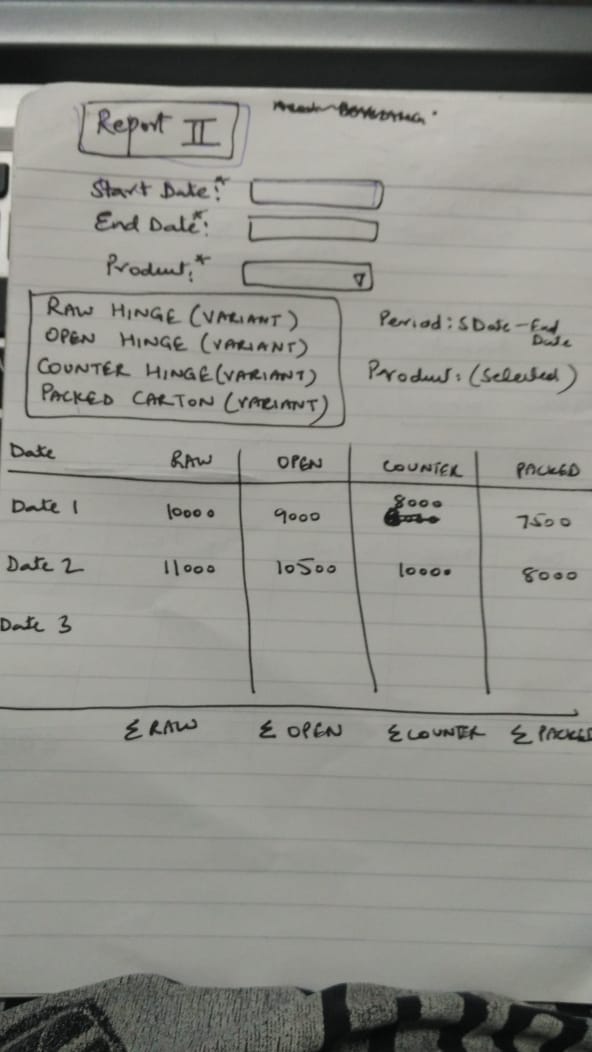 Report II
Start Date:*
End Date*:
Product:*
RAW HINGE (VARIANT)
OPEN HINGE (VARIANT)
COUNTER HINGE (VARIANT)
PACKED CARTON (VARIANT)
Period: SDate - End Date
Product: (Selected)
Date RAW OPEN COUNTER PACKED
Date 1 10000 9000 8000 7500
Date 2 11000 10500 10000 8000
Date 3
Σ RAW Σ OPEN Σ COUNTER Σ PACKED